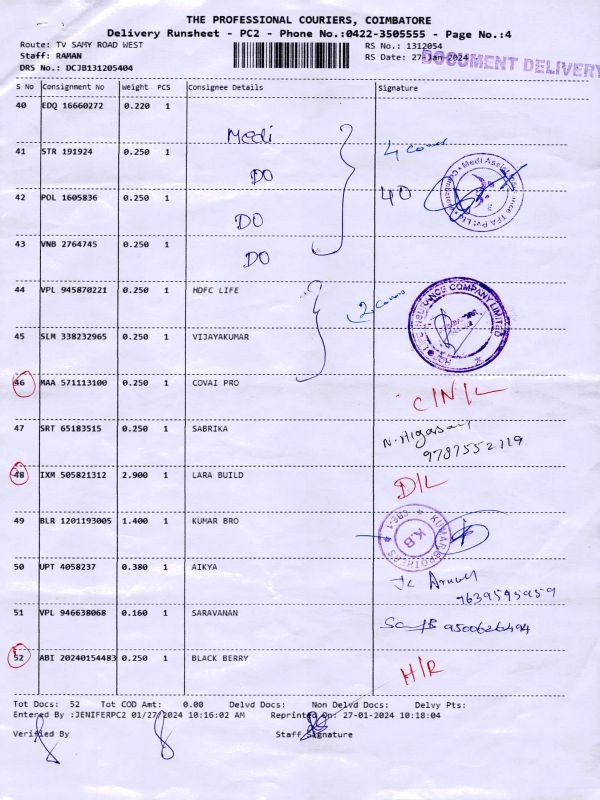 THE PROFESSIONAL COURIERS, COIMBATORE
Delivery Runsheet - PC2 - Phone No.:0422-3505555 - Page No.:4
Route: TV SAMY ROAD WEST RS No.: 1312054
Staff: RAMAN RS Date: 27-Jan-2024
DRS No.: DCJB131205404 DOCUMENT DELIVERY
S No Consignment No Weight PCS Consignee Details Signature
40 EDQ 16660272 0.220 1 Medi
41 STR 191924 0.250 1 DO
42 POL 1605836 0.250 1 DO 40
43 VNB 2764745 0.250 1 DO
44 VPL 945870221 0.250 1 HDFC LIFE
45 SLM 338232965 0.250 1 VIJAYAKUMAR
46 MAA 571113100 0.250 1 COVAI PRO C/N/L
47 SRT 65183515 0.250 1 SABRIKA
9787552719
48 IXM 505821312 2.900 1 LARA BUILD D/L
49 BLR 1201193005 1.400 1 KUMAR BRO KUMAR BROTHERS K.B CBE-1
50 UPT 4058237 0.380 1 AIKYA
7639595959
51 VPL 946638068 0.160 1 SARAVANAN 9500626494
52 ABI 20240154483 0.250 1 BLACK BERRY H/R
Tot Docs: 52 Tot COD Amt: 0.00 Delvd Docs: Non Delvd Docs: Delvy Pts:
Entered By :JENIFERPC2 01/27/2024 10:16:02 AM Reprinted On: 27-01-2024 10:18:04
Verified By Staff Signature